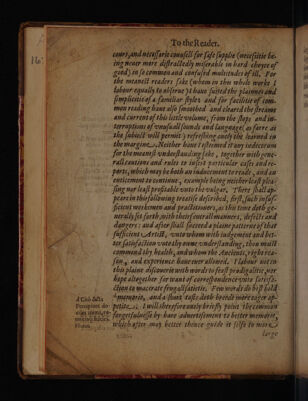 To the Reader.
cour, and necessarie counsell for safe supplie (necessitie be-
ing neuer more distractedly miserable in hard choyce of
good) in so common and confused multitudes of ill. For
the meanest readers sake (whom in this whole worke I
labour equally to obserue) I haue suted the plainnes and
simplicitie of a familiar style; and for facilitie of com-
mon reading haue also smoothed and cleared the streame
and current of this little volume, from the stops and in-
terruptions of vnusuall sounds and language, as farre as
the subiect will permit) refreshing onely the learned in
the margine. Neither haue I esteemed it any indecorum
for the meanest vnderstanding sake, together with gene-
rall cautions and rules to insert particular cases and re-
ports, which may be both an inducement to reade, and an
enticement to continue, example being neither least plea-
sing nor least profitable vnto the vulgar. There shall ap-
peare in this following treatise described, first, such insuf-
ficient workemen and practitioners, as this time doth ge-
nerally set forth, with their seuerall manners, defects and
dangers: and after shall succeed a plaine patterne of that
sufficient Artist, vnto whom with iudgement and bet-
ter satisfaction vnto thy owne vnderstanding, thou maist
commend thy health, and whom the Ancients, right rea-
son, and experience haue euer allowed. I labour not in
this plaine discouerie with words to feast prodigalitie, nor
hope altogether for want of correspondence vnto satisfa-
ction to macerate frugall satietie. Few words do best hold
memorie, and a short taste doth breede more eager ap-
petite. I will therefore only briefly point the common
forgetfulnesse by bare aduertisement to better memorie,
which after may better thence guide it selfe to more
large
d Citò dicta
Percipiant do-
ciles animi, te-
neántque fideles.
Horat.